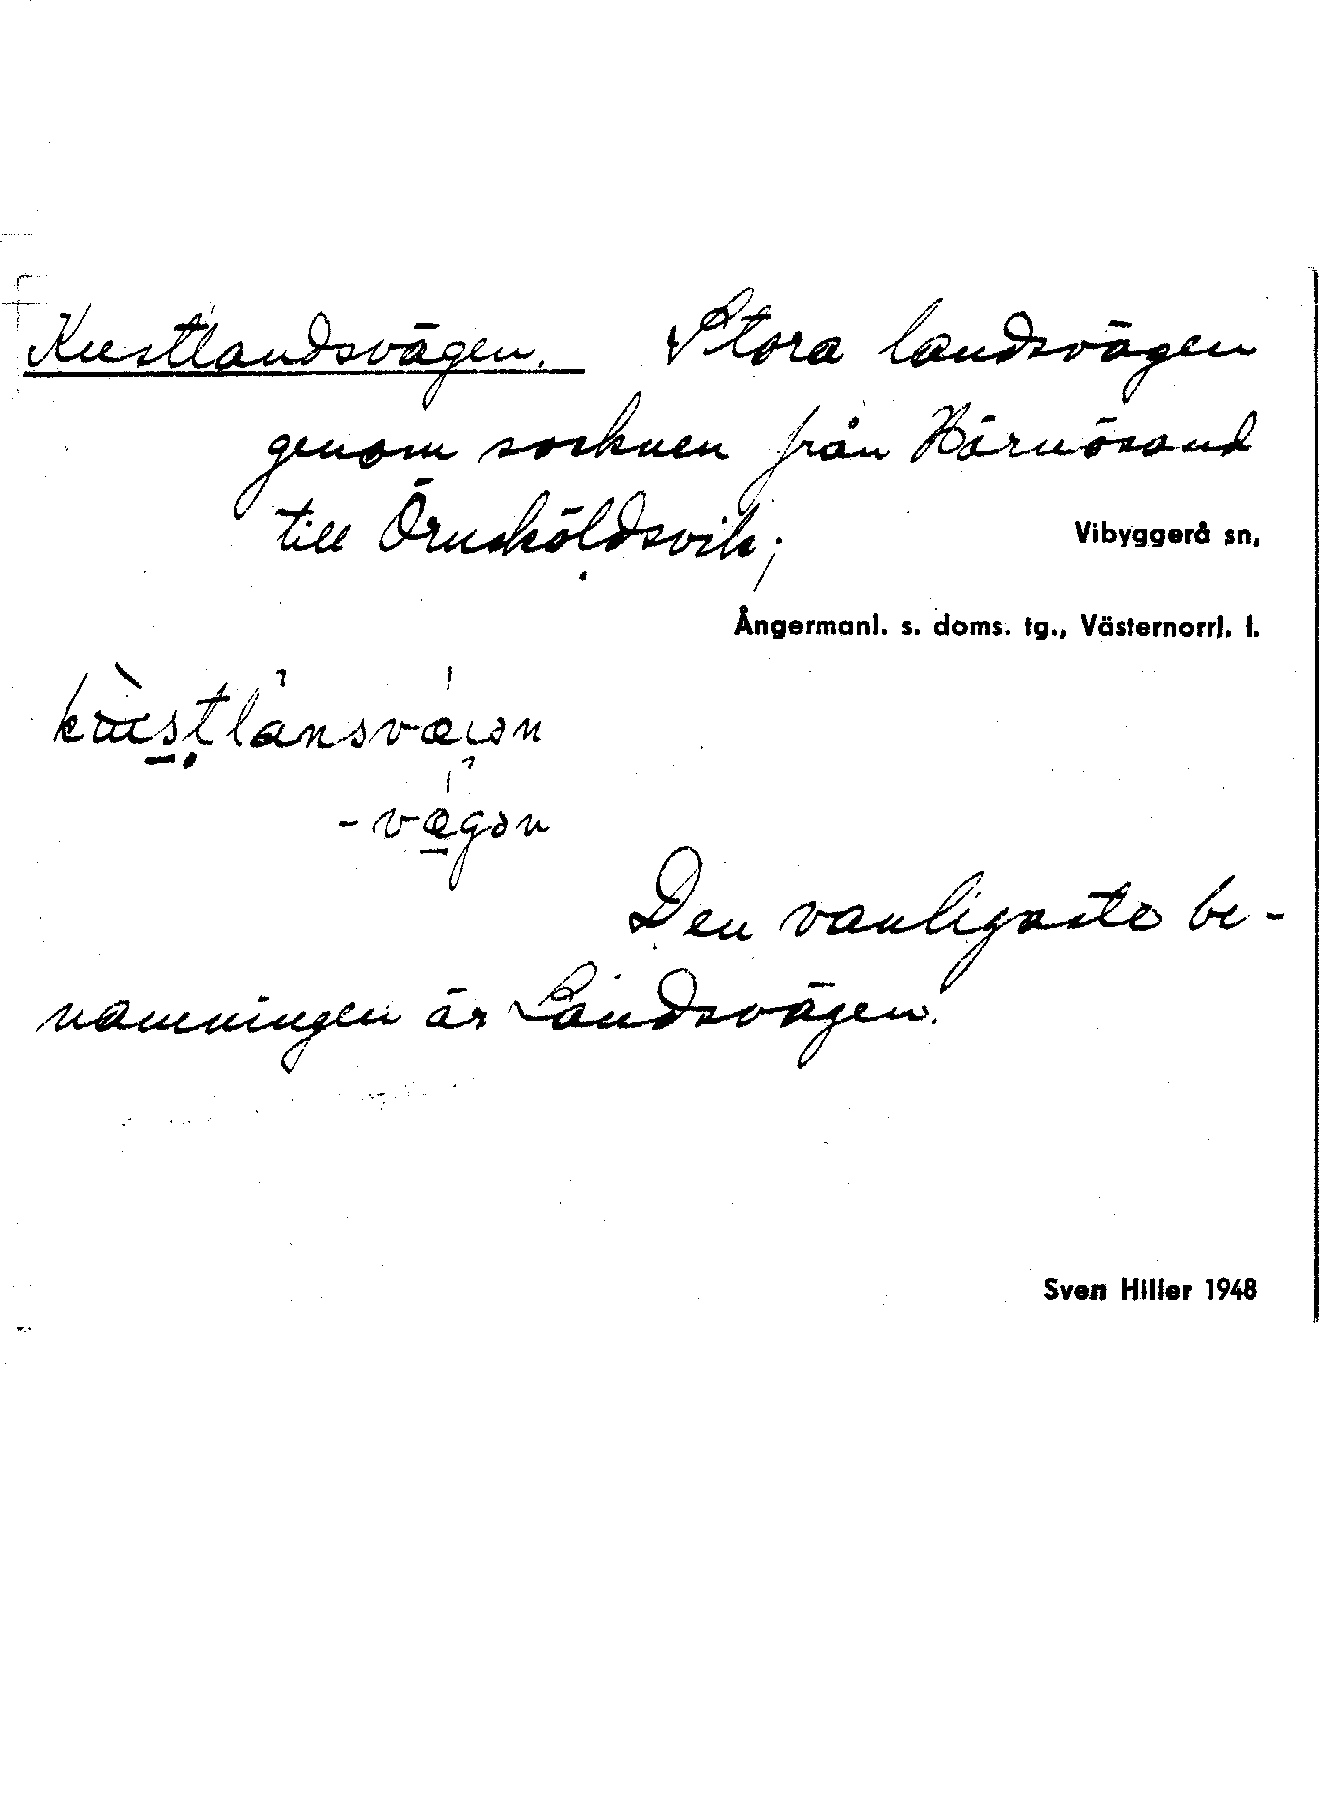 Kustlandsvägen. Stora landsvägen
genom socknen från Härnösand
till Örnsköldsvik;
Vibyggerå sn,
Ångermanl. s. doms. tg., Västernorrl. l.
-vægən
Den vanligaste be-
nämningen är Landsvägen.
Sven Hiller 1948